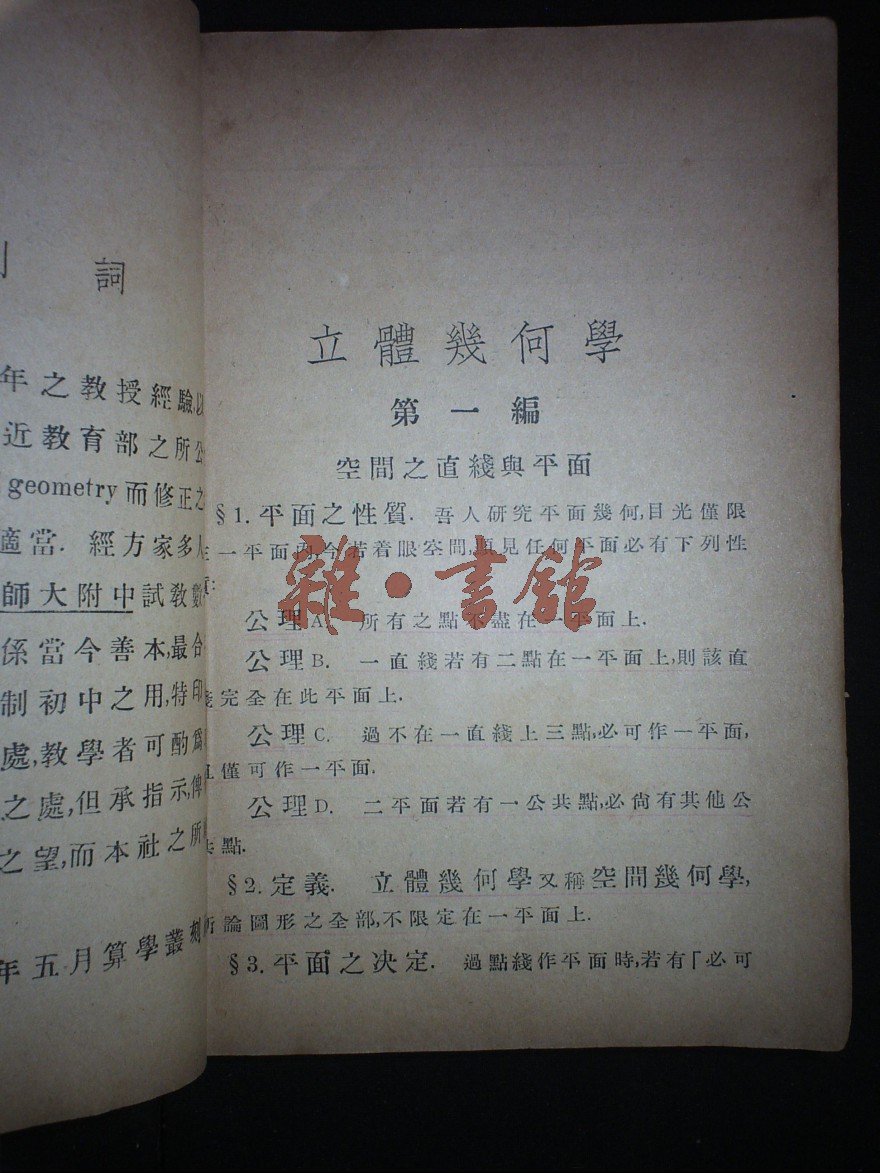 詞
年之教授經驗,以
近教育部之所公
geometry 而修正之
適當. 經方家多人
師大附中試教數
係當今善本,最合
制初中之用,特印
處,教學者可酌為
之處,但承指示,俾
之望,而本社之所
年五月算學叢刻
立體幾何學
第一編
空間之直綫與平面
§1. 平面之性質. 吾人研究平面幾何,目光僅限
一平面 今若着眼空間, 見任何平面必有下列性
質:
公理A. 所有之點不盡在一平面上.
公理B. 一直綫若有二點在一平面上,則該直
綫完全在此平面上.
公理C. 過不在一直綫上三點,必可作一平面,
且僅可作一平面.
公理D. 二平面若有一公共點,必尚有其他公
共點.
§2. 定義. 立體幾何學又稱空間幾何學,
所論圖形之全部,不限定在一平面上.
§3. 平面之決定. 過點綫作平面時,若有「必可
雜·書館